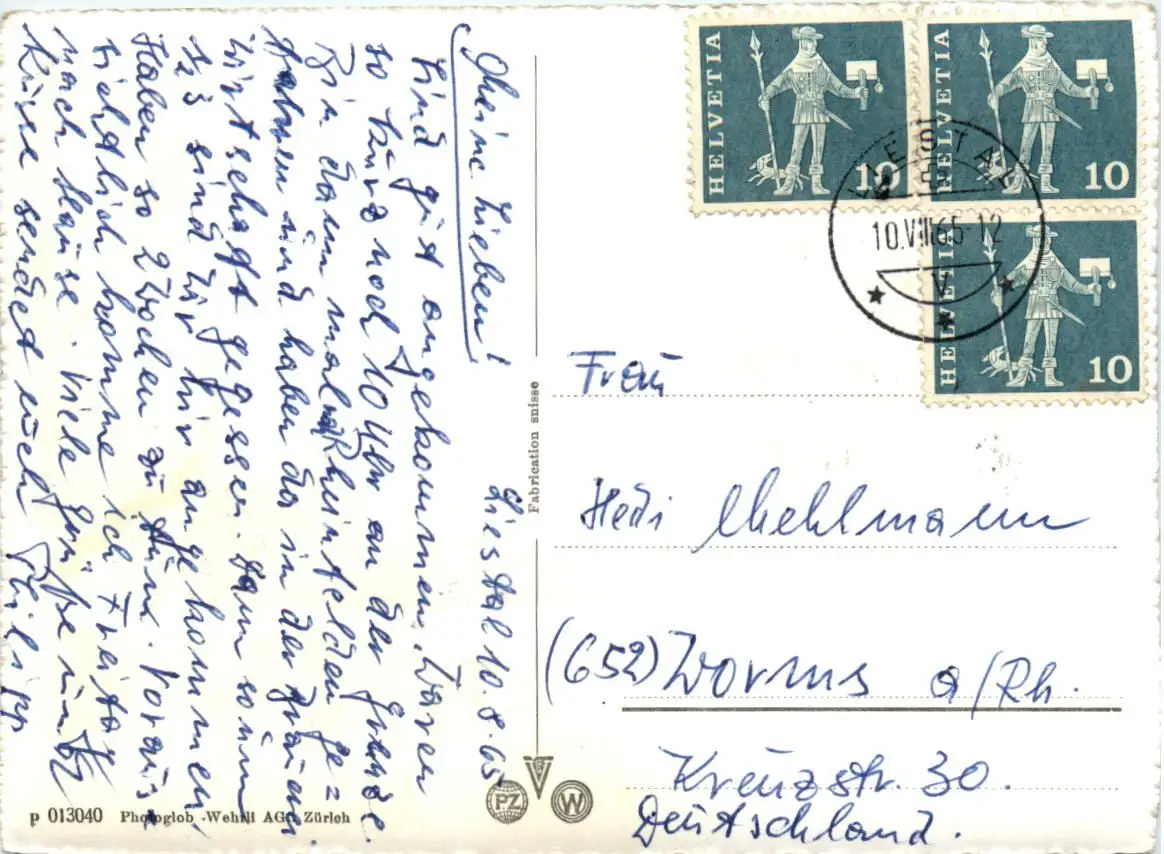 Liestal 10.8.65
Meine Lieben!
Sind gut angekommen. Waren
so kurz nach 10 Uhr an der Grenze.
Bin dann mal nach Rheinfelden ge=
fahren und haben da in der
wirtschaft gegessen. Dann so um
½3 sind wir hier angekommen.
Haben so 2 Wochen zu tun. Voraus=
sichtlich komme ich Freitag
nach Hause. Viele Grüße und
Küsse sendet euch Philipp
Fabrication suisse
HELVETIA 10
HELVETIA 10
HELVETIA 10
LIESTAL
10.VIII.65-12
V
Frau
Hedi Mehlmann
(652) Worms a/Rh.
Kreuzstr. 30.
Deutschland.
p 013040 Photoglob-Wehrli AG., Zürich
PZ
W